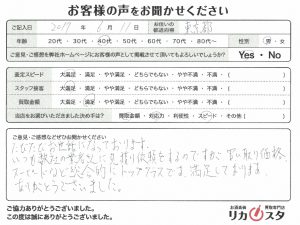 お客様の声をお聞かせください
ご記入日 2019年 6月 11日 お住いの都道府県 東京都
年齢 20代・30代・40代・50代・60代・70代・80代～ 性別 男・女
ご意見・ご感想を弊社ホームページにお客様の声として掲載させて頂いてもよろしいでしょうか? Yes・No
査定スピード 大満足・満足・やや満足・どちらでもない・やや不満・不満・( )
スタッフ接客 大満足・満足・やや満足・どちらでもない・やや不満・不満・( )
買取金額 大満足・満足・やや満足・どちらでもない・やや不満・不満・( )
当店をお選びいただきました決め手は? 買取金額・対応力・利便性・スピード・その他( )
ご意見・ご感想などぜひお聞かせください
いつもお世話になっております。
いつも数社の業者さんに見積り依頼をするのですが、買い取り価格、
スピードなど総合的にトップクラスでは、満足しております。
ありがとうございました。
ご協力ありがとうございました。
この度は誠にありがとうございました。
お酒直価 買取専門店
リカスタ